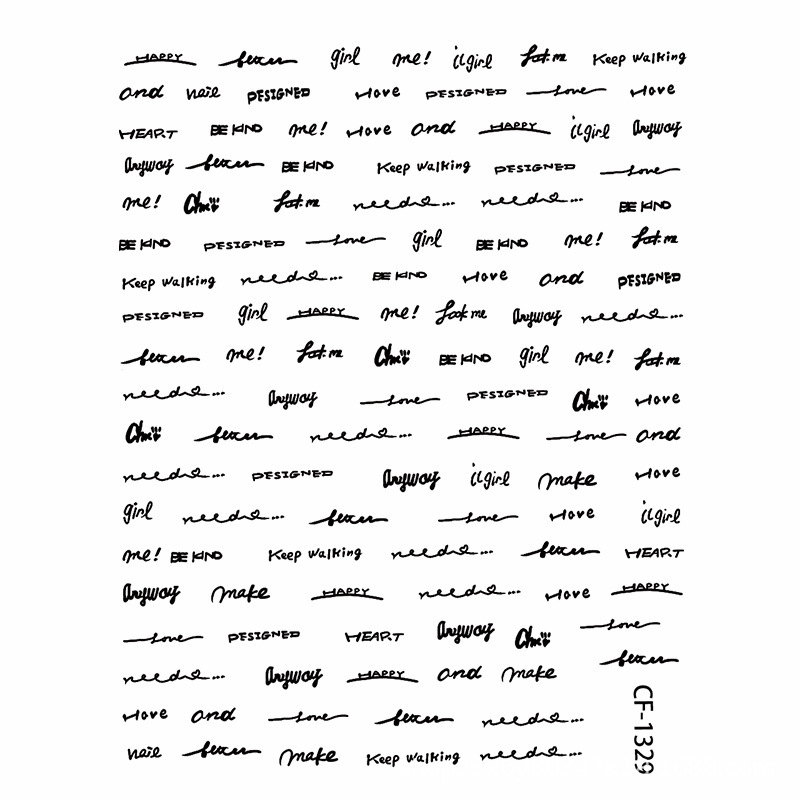 HAPPY better girl me! ilgirl Look me Keep walking
and nail DESIGNED Hove DESIGNED Love Hove
HEART BE KIND me! Hove and HAPPY ilgirl Anyway
Anyway better BE KIND Keep walking DESIGNED Love
me! Look me need... need... BE KIND
BE KIND DESIGNED Love girl BE KIND me! Look me
Keep walking need... BE KIND Hove and DESIGNED
DESIGNED girl HAPPY me! Look me Anyway need...
better me! Look me BE KIND girl me! Look me
need... Anyway Love DESIGNED Hove
better need... HAPPY Love and
need... DESIGNED Anyway ilgirl make Hove
girl need... better Love Hove ilgirl
me! BE KIND Keep walking need... better HEART
Anyway make HAPPY need... Hove HAPPY
Love DESIGNED HEART Anyway Love
better
need... Anyway HAPPY and make
Hove and Love better need...
nail better make Keep walking need...
CF-1329